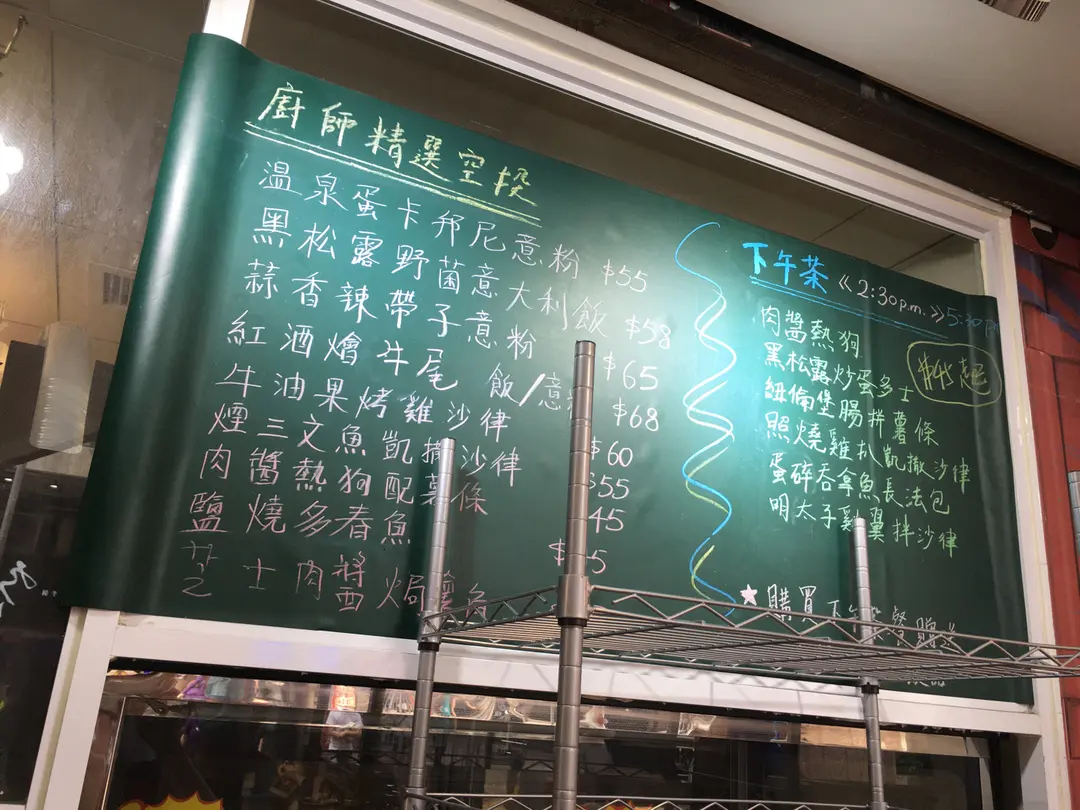 廚師精選空投
温泉蛋卡邦尼意粉 $55
黑松露野菌意大利飯 $58
蒜香辣帶子意粉 $65
紅酒燴牛尾 飯/意 $68
牛油果烤雞沙律 $60
煙三文魚凱撒沙律 55
肉醬熱狗配薯條 45
鹽燒多春魚
芝士肉醬焗
下午茶 《2:30p.m.》5:30
肉醬熱狗
黑松露炒蛋多士
紐倫堡腸拼薯條
照燒雞扒凱撒沙律
蛋碎吞拿魚長法包
明太子雞翼拌沙律
★購買下午茶餐贈送